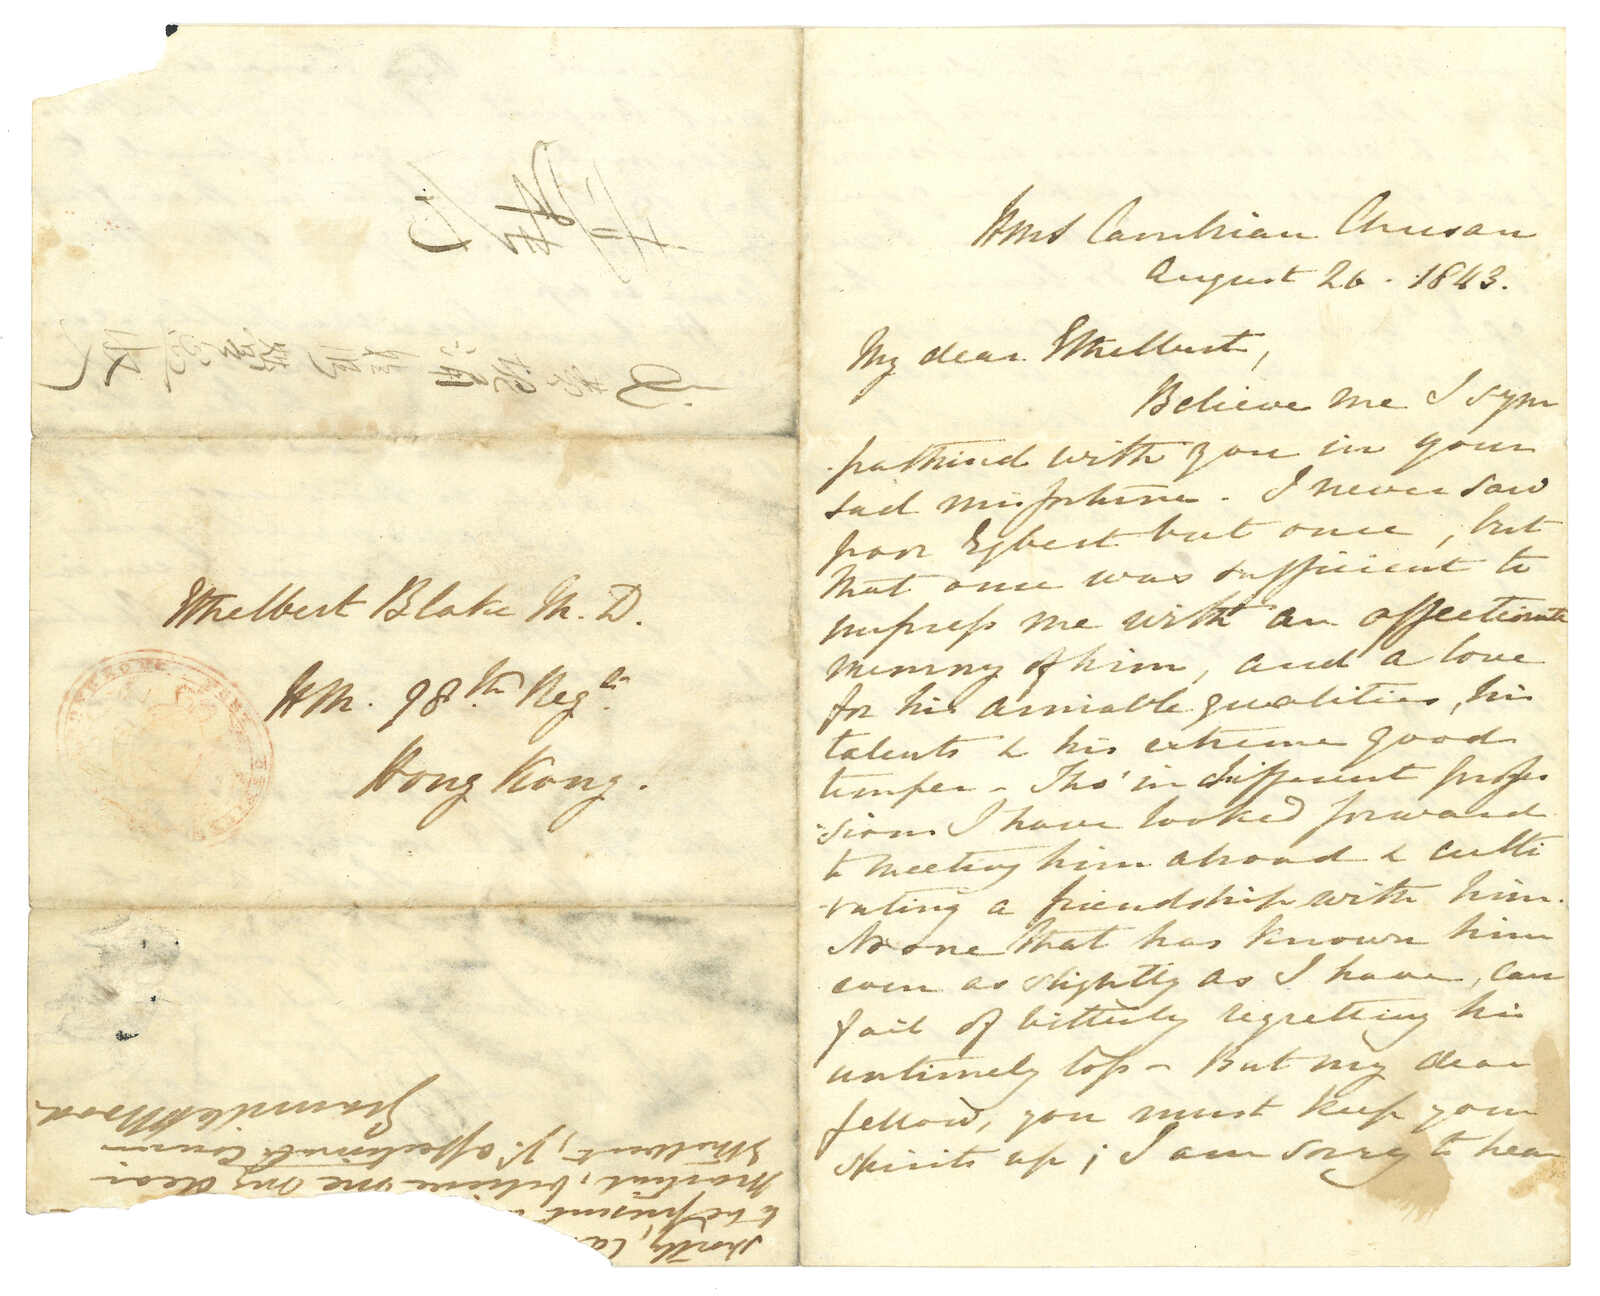 HMS Cambrian Chusan
August 26. 1843.
My dear Ethelbert,
Believe me I sym
pathized with you in your
sad misfortune. I never saw
poor Egbert but once, but
that once was sufficient to
impress me with an affectionate
memory of him, and a love
for his amiable qualities, his
talents & his extreme good
temper - Tho' in different profes
sions I have looked forward
to meeting him abroad & culti
vating a friendship with him.
No one that has known him
even as slightly as I have, can
fail of bitterly regretting his
untimely loss - But my dear
fellow, you must keep your
spirits up; I am sorry to hear
Ethelbert Blake M. D.
HM. 98th Regt.
Hong Kong.
shortly,
to be present
believe me my dear
Ethelbert, yr. affectionate Cousin